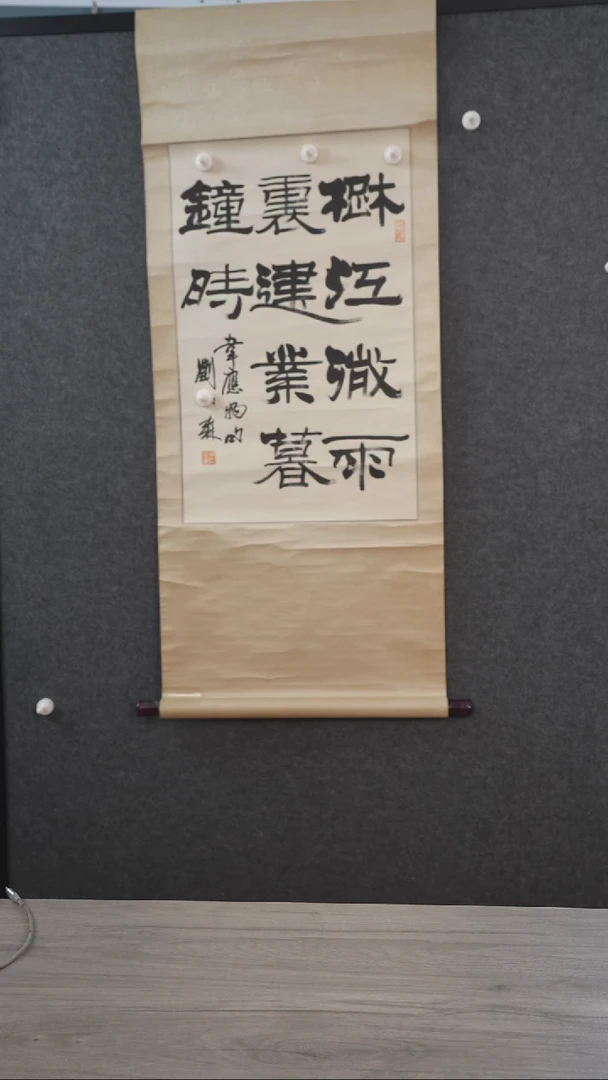 楚江微雨
裏建業暮
鐘時
韋應物句
劉 森